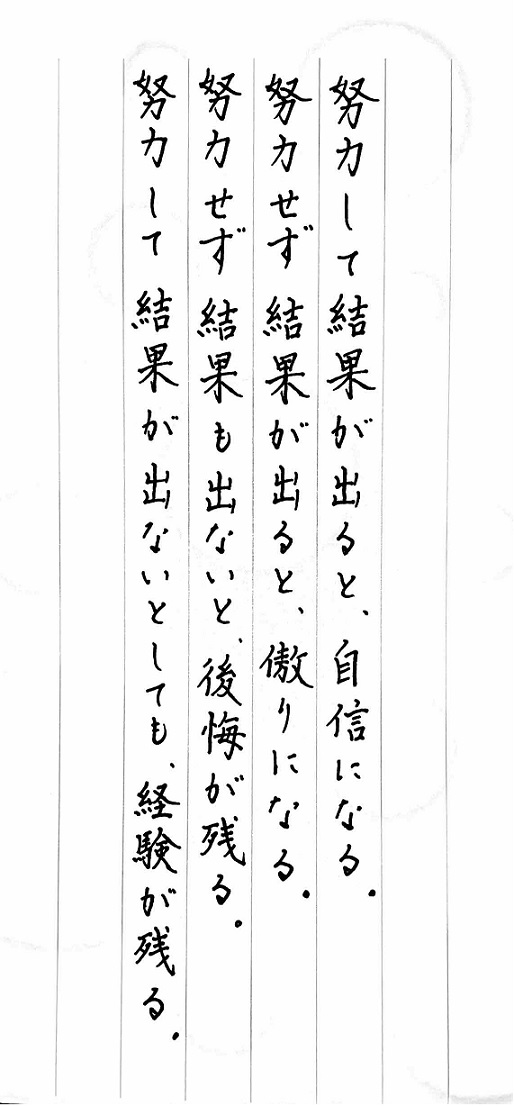 努力して結果が出ると、自信になる.
努力せず結果が出ると、傲りになる.
努力せず結果も出ないと、後悔が残る.
努力して結果が出ないとしても、経験が残る.